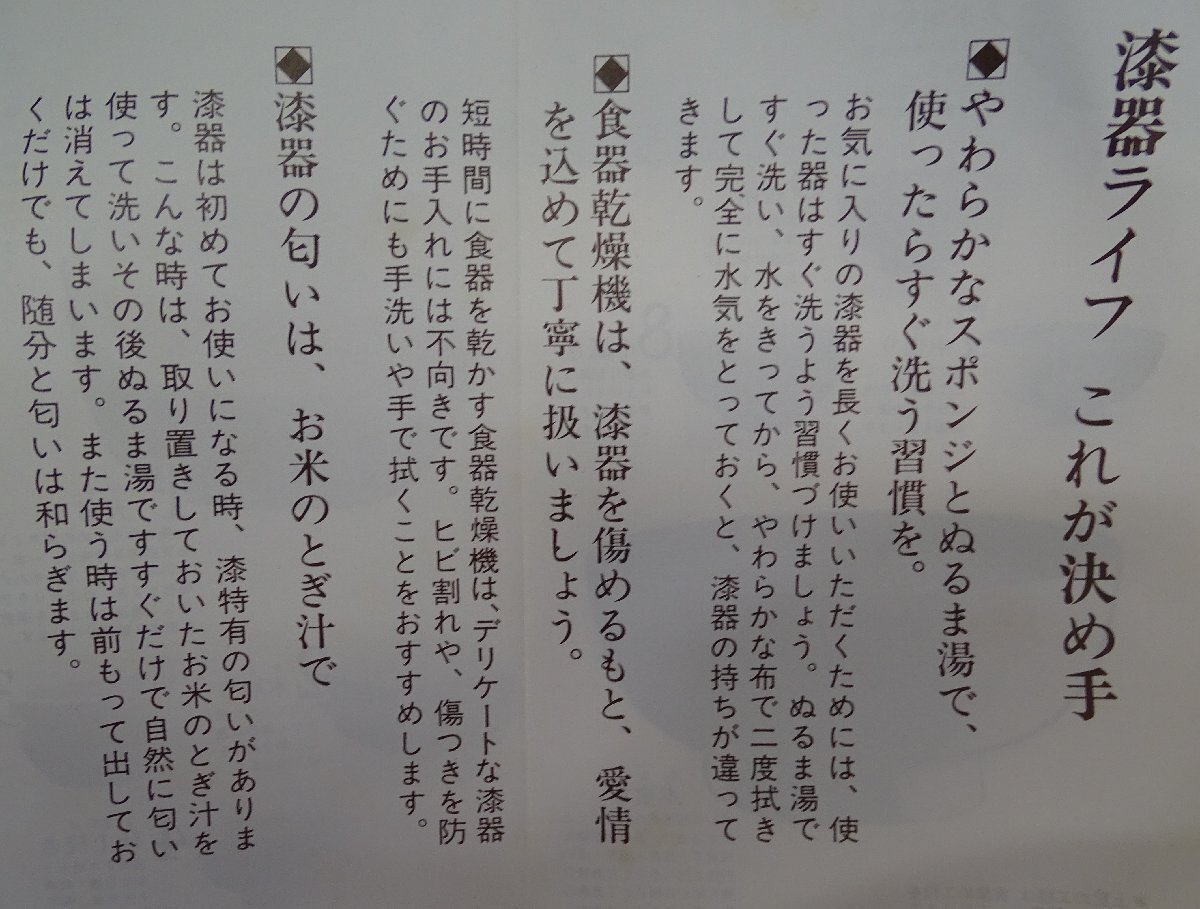 漆器ライフ これが決め手
やわらかなスポンジとぬるま湯で、
使ったらすぐ洗う習慣を。
お気に入りの漆器を長くお使いいただくためには、使
った器はすぐ洗うよう習慣づけましょう。ぬるま湯で
すぐ洗い、水をきってから、やわらかな布で二度拭き
して完全に水気をとっておくと、漆器の持ちが違って
きます。
食器乾燥機は、漆器を傷めるもと、愛情
を込めて丁寧に扱いましょう。
短時間に食器を乾かす食器乾燥機は、デリケートな漆器
のお手入れには不向きです。ヒビ割れや、傷つきを防
ぐためにも手洗いや手で拭くことをおすすめします。
漆器の匂いは、お米のとぎ汁で
漆器は初めてお使いになる時、漆特有の匂いがありま
す。こんな時は、取り置きしておいたお米のとぎ汁を
使って洗いその後ぬるま湯ですすぐだけで自然に匂い
は消えてしまいます。また使う時は前もって出してお
くだけでも、随分と匂いは和らぎます。